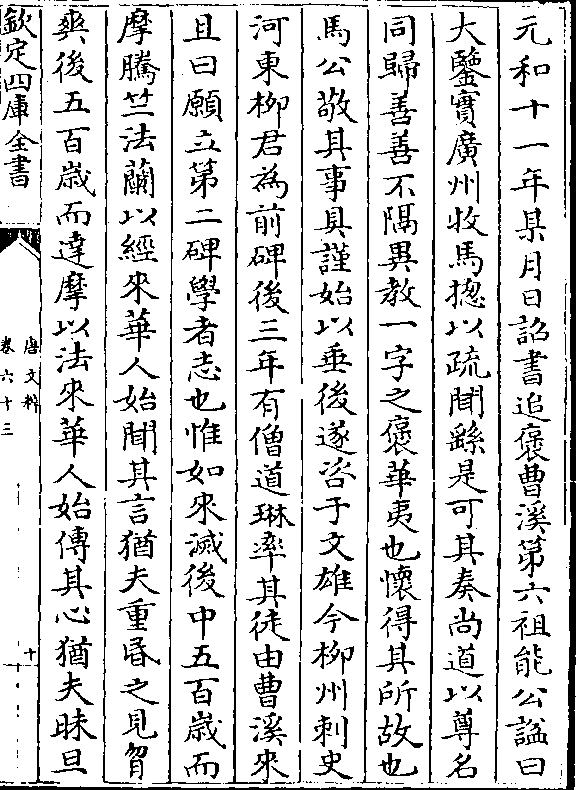 元和十一年某月日詔書追褒曹溪第六祖能公諡曰
大鑒實廣州牧馬摠以疏聞繇是可其奏尚道以尊名
同歸善善不隔異教一字之褒華夷也懷得其所故也
馬公敬其事具謹始以垂後遂咨于文雄今柳州刺史
河東柳君為前碑後三年有僧道琳率其徒由曹溪來
且曰願立第二碑學者志也惟如來滅後中五百歲而
摩騰竺法蘭以經來華人始聞其言猶夫重昏之見曶
爽後五百歲而達摩以法來華人始傳其心猶夫昧旦
欽定四庫全書
唐文粹
卷六十三
十